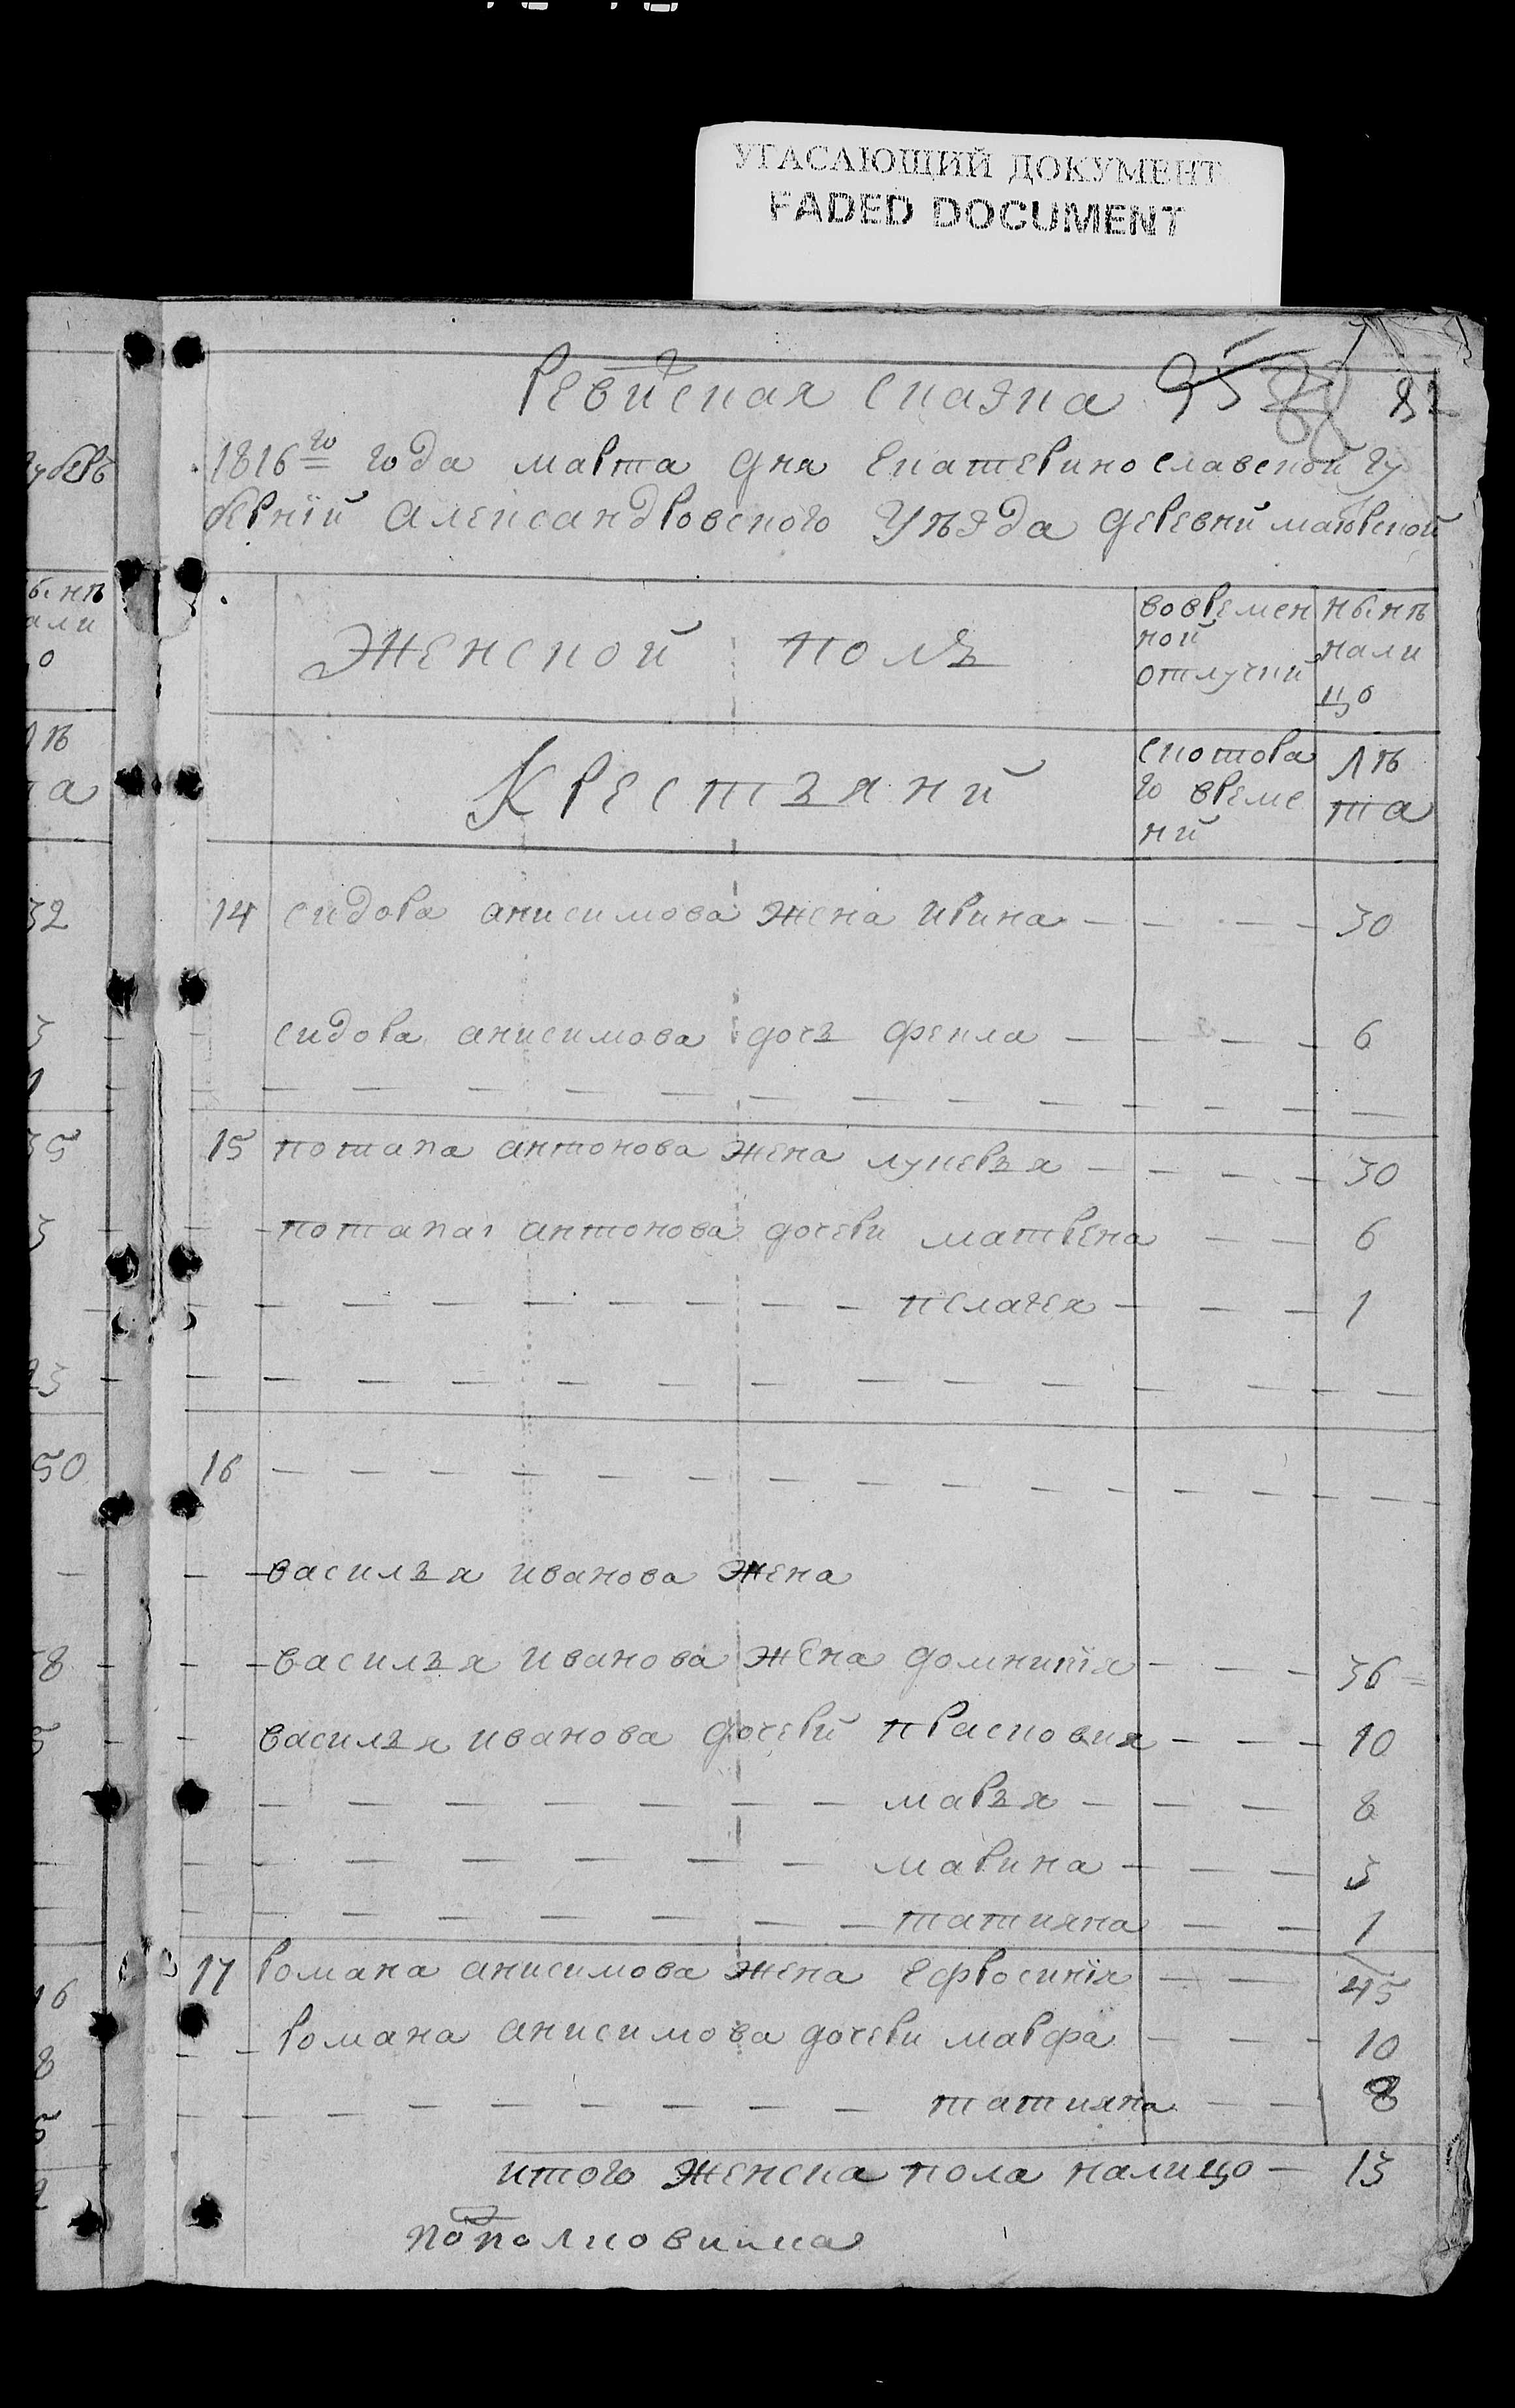 УГАСАЮЩИЙ ДОКУМЕНТ
FADED DOCUMENT
Ревиская сказка 95 88 82
1816го года марта дня Екатеринославской гу
бернїй Александровского Уѣзда деревни маюрской
Женской полъ
во времен
ной
отлучкй
нынѣ
нали
цо
Крестъяний
с которо
го време
ни
лѣ
та
14 сидора анисимова жена ирина 30
сидора анисимова дочъ фекла 6
15 потапа антонова жена лукеръя 30
потапа антонова дочери матрена 6
пелагея 1
16
василъя иванова жена
василъя иванова жена домникїя 36
василъя иванова дочерй прасковия 10
маръя 8
марина 3
татияна 1
17 романа анисимова жена Ефросинїя 45
романа анисимова дочери марфа 10
татияна 8
итого женска пола налицо 13
подполковника
губерѣ
ынѣ
али
цо
лѣ
та
32
3
35
3
23
50
8
16
8